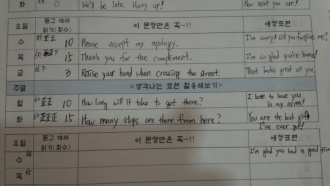 화 0 We'll be late. Hurry up!
요일 듣고 따라 읽기(횟수) 이 문장만은 꼭~!! 애정표현
수 10 Please accept my apology. I'm sorry!
목 15 Thank you for the compliment. I'm so glad you're home!
금 3 Raise your hand when crossing the street. That looks great on you.
주말 <생각나는 표현 활용해보기>
월 正正 10 How long will it take to get there? I love to have you in my arms!
화 正正正 15 How many stops are there from here? You are the best gift I've ever got!
요일 듣고 따라 읽기(횟수) 이 문장만은 꼭~!! 애정표현
수 I'm glad you had a good
목